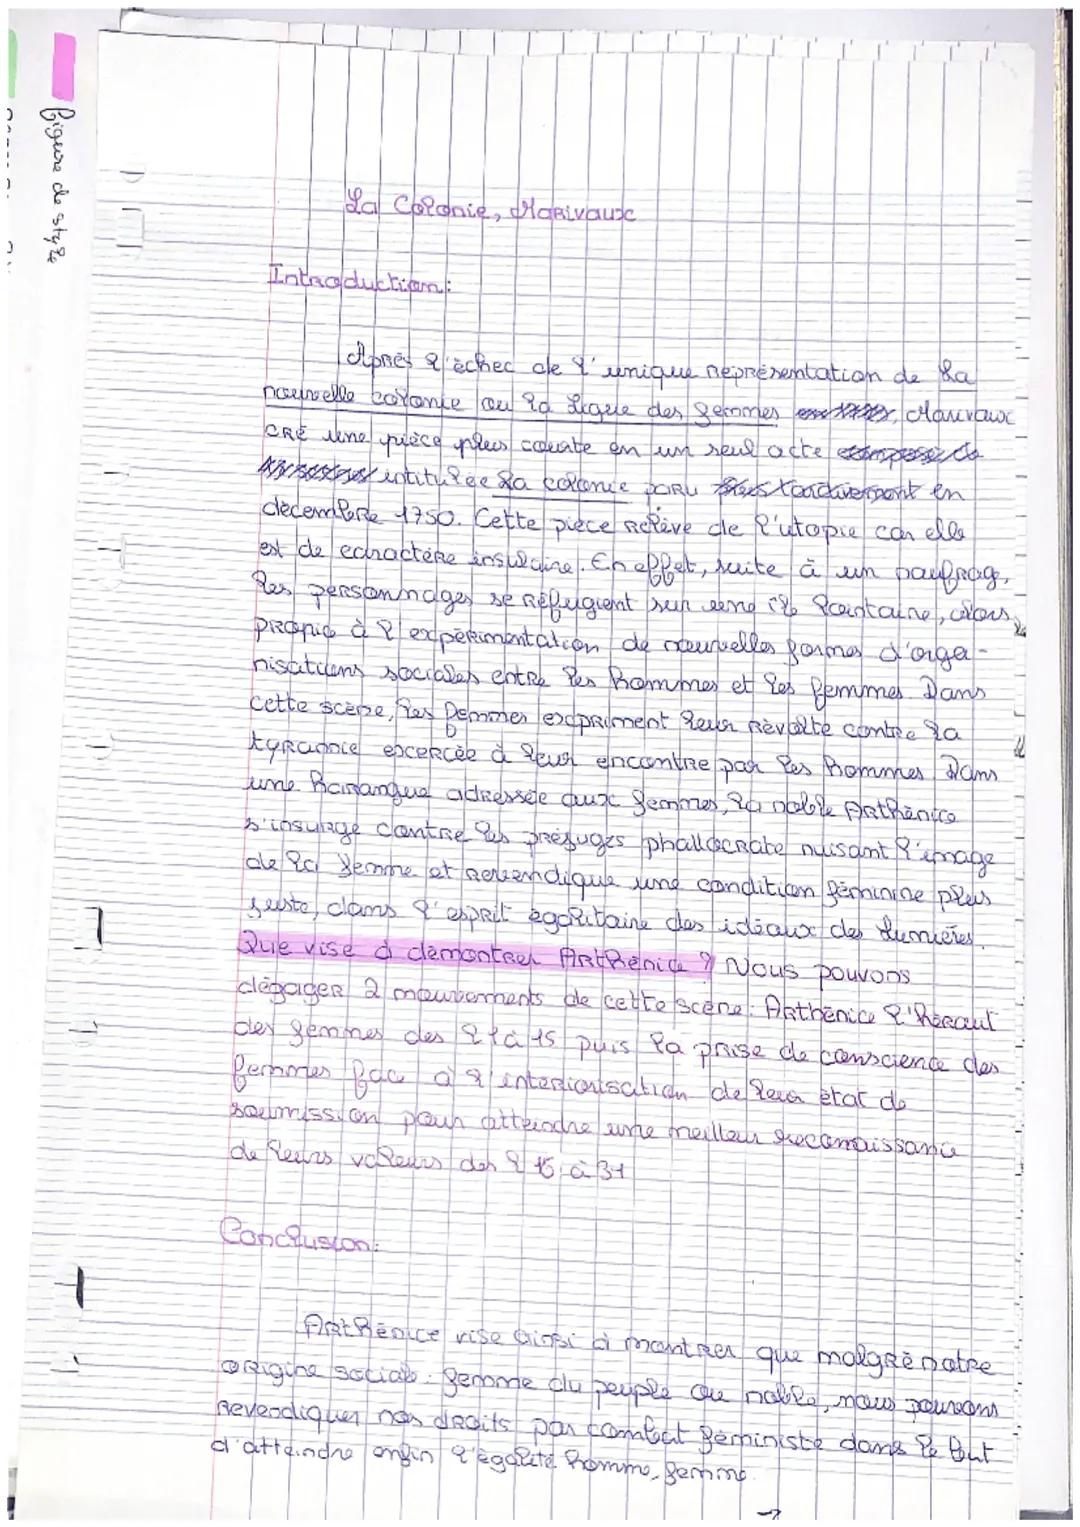 Figure de style
La Colonie, Marivaux
Introduction:
Après l'échec de l'unique représentation de La
nouvelle colonie ou la Ligue des femmes, Marivaux
cré une pièce plus courte en un seul acte
intitulée La colonie paru tardivement en
décembre 1750. Cette pièce relève de l'utopie car elle
est de caractère insulaire. En effet, suite à un naufrag,
les personnages se réfugient sur une île lointaine, alors
propic à l'expérimentation de nouvelles formes d'orga-
nisations sociales entre les hommes et les femmes. Dans
cette scène, les femmes expriment leur révolte contre la
tyrannie excercée à leur encontre par les hommes. Dans
une harangue adressée aux femmes, la noble Arthénice
s'insurge contre les préjugés phallocrate nuisant l'image
de la femme et revendique une condition féminine plus
juste, dans l'esprit égalitaire des idéaux des Lumières.
Que vise à démontrer Arthénice ? Nous pouvons
dégager 2 mouvements de cette scène: Arthénice l'héraut
des femmes des l 1 à 15 puis la prise de conscience des
femmes fac à l'interiorisation de leur état de
soumission pour atteindre une meilleur reconnaissance
de leurs valeurs des l 15 à 31
Conclusion:
Arthénice vise ainsi à montrer que malgré notre
origine sociale: femme du peuple ou noble, nous pouvons
revendiquer nos droits par combat féministe dans le but
d'atteindre enfin l'égalité homme, femme.